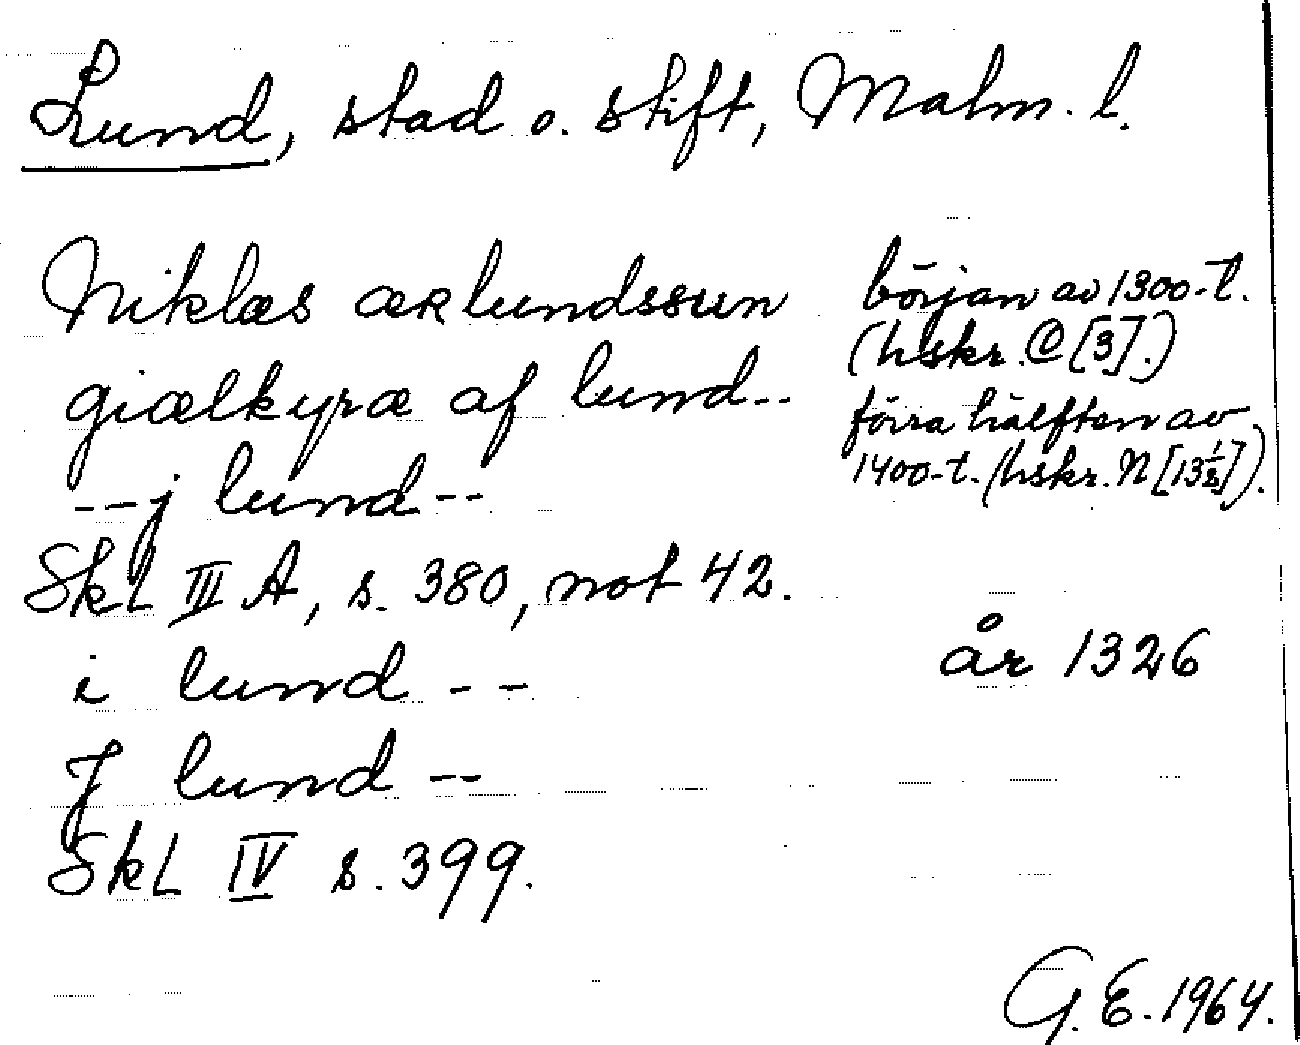 Lund, stad o. stift, Malm. l.
Niklæs æʀlundssun
giælkyræ af lund--
--j lund--
början av 1300-t.
(hskr. C [3].)
förra hälften av
1400-t. (hskr. N [13½]).
SkL III A, s. 380, not 42.
i lund --
år 1326
J lund --
SkL IV s. 399.
G. E. 1964.